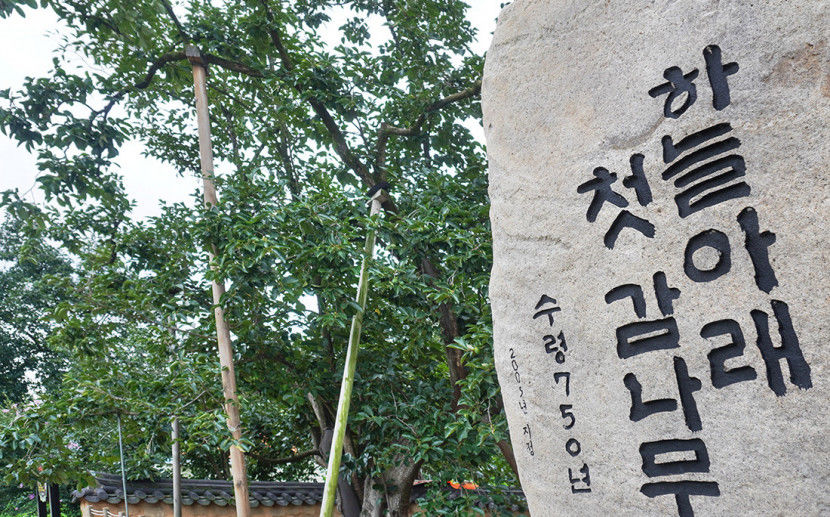 하늘아래
첫감나무
수령750년
2005년 지정